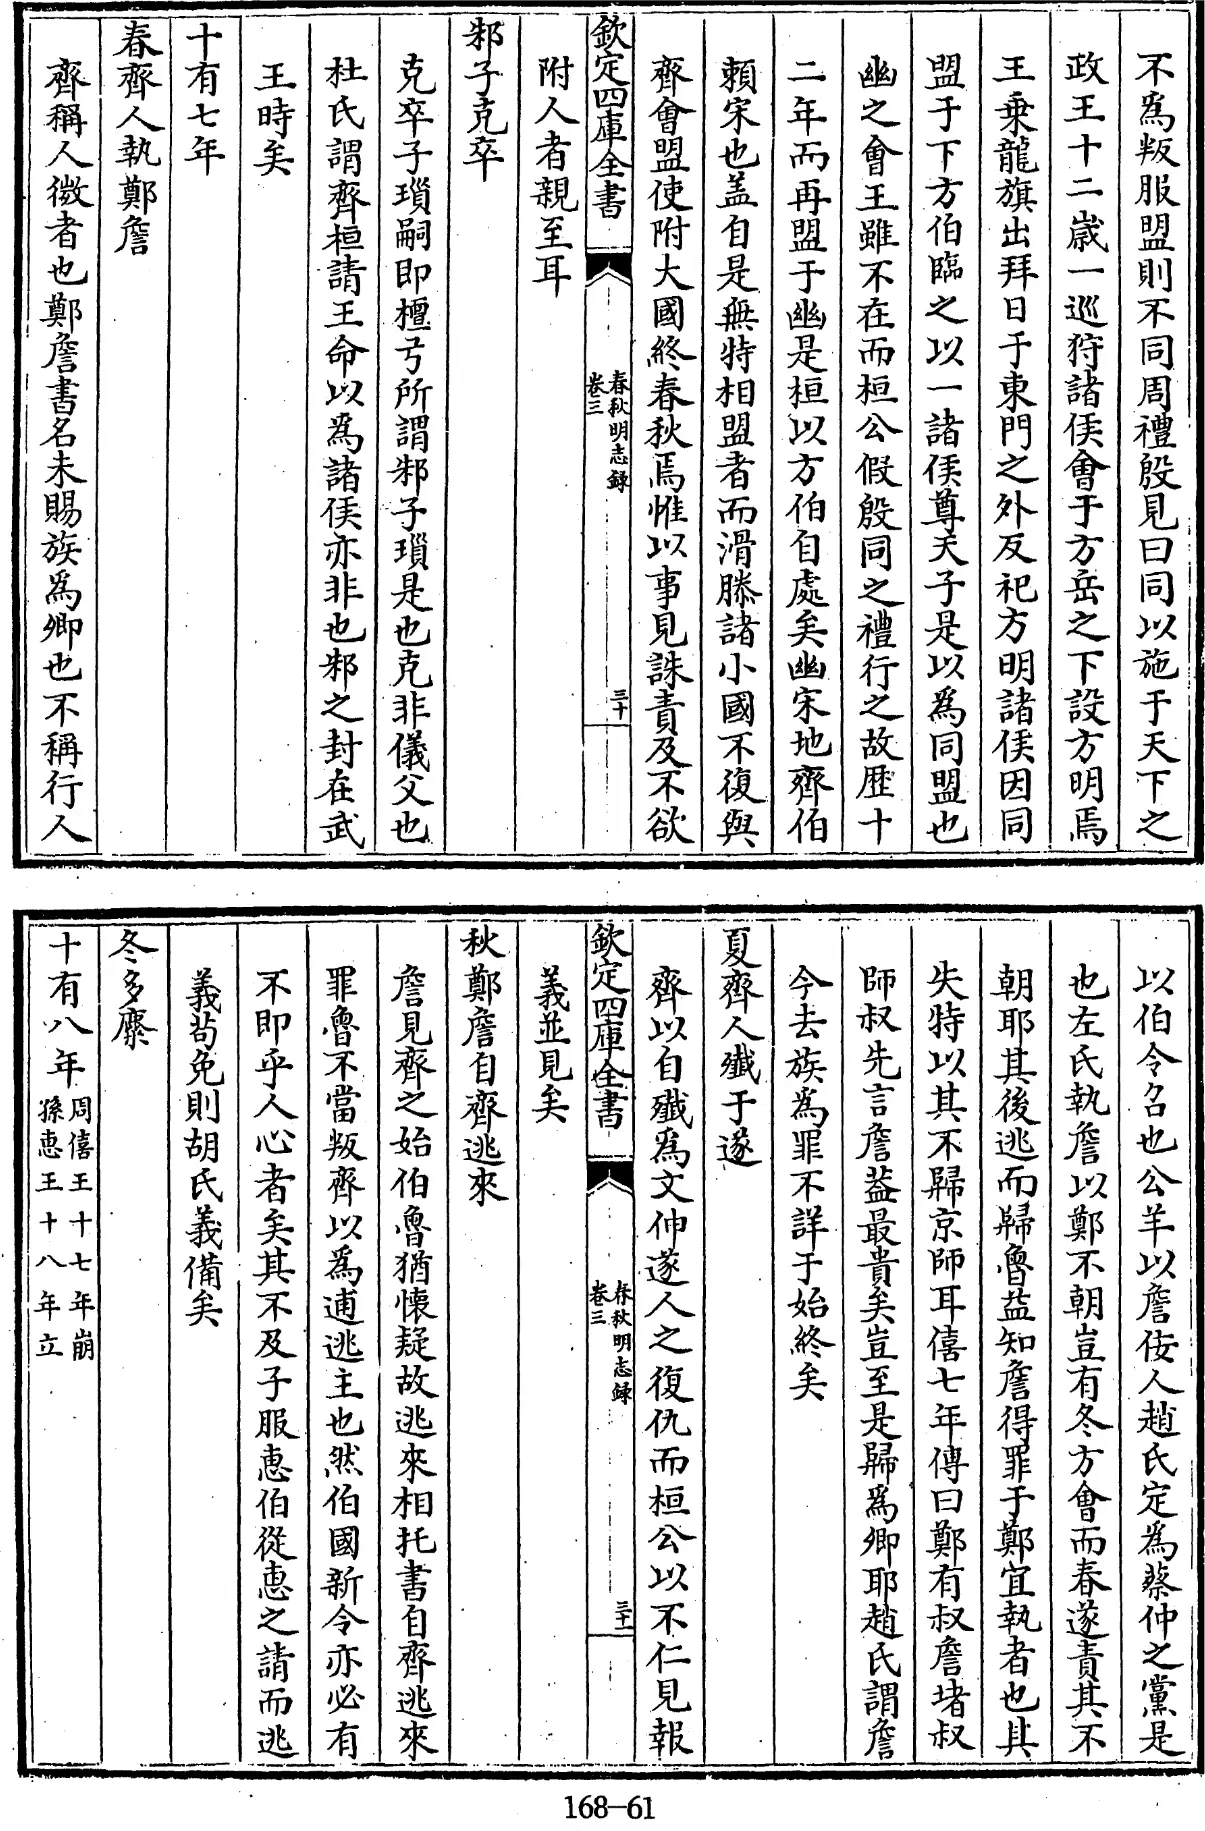 不爲叛服盟則不同周禮殷見曰同以施于天下之
政王十二歲一巡狩諸侯會于方岳之下設方明焉
王乗龍旗出拜日于東門之外反祀方明諸侯因同
盟于下方伯臨之以一諸侯尊天子是以爲同盟也
幽之會王雖不在而桓公假殷同之禮行之故歴十
二年而再盟于幽是桓以方伯自處矣幽宋地齊伯
頼宋也盖自是無特相盟者而滑滕諸小國不復與
齊會盟使附大國終春秋焉惟以事見誅責及不欲
欽定四庫全書
春秋明志錄
卷三
三十
附人者親至耳
邾子克卒
克卒子瑣嗣即檀弓所謂邾子瑣是也克非儀父也
杜氏謂齊桓請王命以爲諸侯亦非也邾之封在武
王時矣
十有七年
春齊人執鄭詹
齊稱人微者也鄭詹書名未賜族爲卿也不稱行人
以伯令召也公羊以詹佞人趙氏定爲蔡仲之黨是
也左氏執詹以鄭不朝豈有冬方會而春遂責其不
朝耶其後逃而歸魯益知詹得罪于鄭宜執者也其
失特以其不歸京師耳僖七年傳曰鄭有叔詹堵叔
師叔先言詹葢最貴矣豈至是歸爲卿耶趙氏謂詹
今去族爲罪不詳于始終矣
夏齊人殱于遂
齊以自殱爲文仲遂人之復仇而桓公以不仁見報
欽定四庫全書
春秋明志錄
卷三
三十一
義並見矣
秋鄭詹自齊逃來
詹見齊之始伯魯猶懷疑故逃來相托書自齊逃來
罪魯不當叛齊以爲逋逃主也然伯國新令亦必有
不即乎人心者矣其不及子服惠伯從惠之請而逃
義苟免則胡氏義備矣
冬多麋
十有八年周僖王十七年崩
孫惠王十八年立
168-61